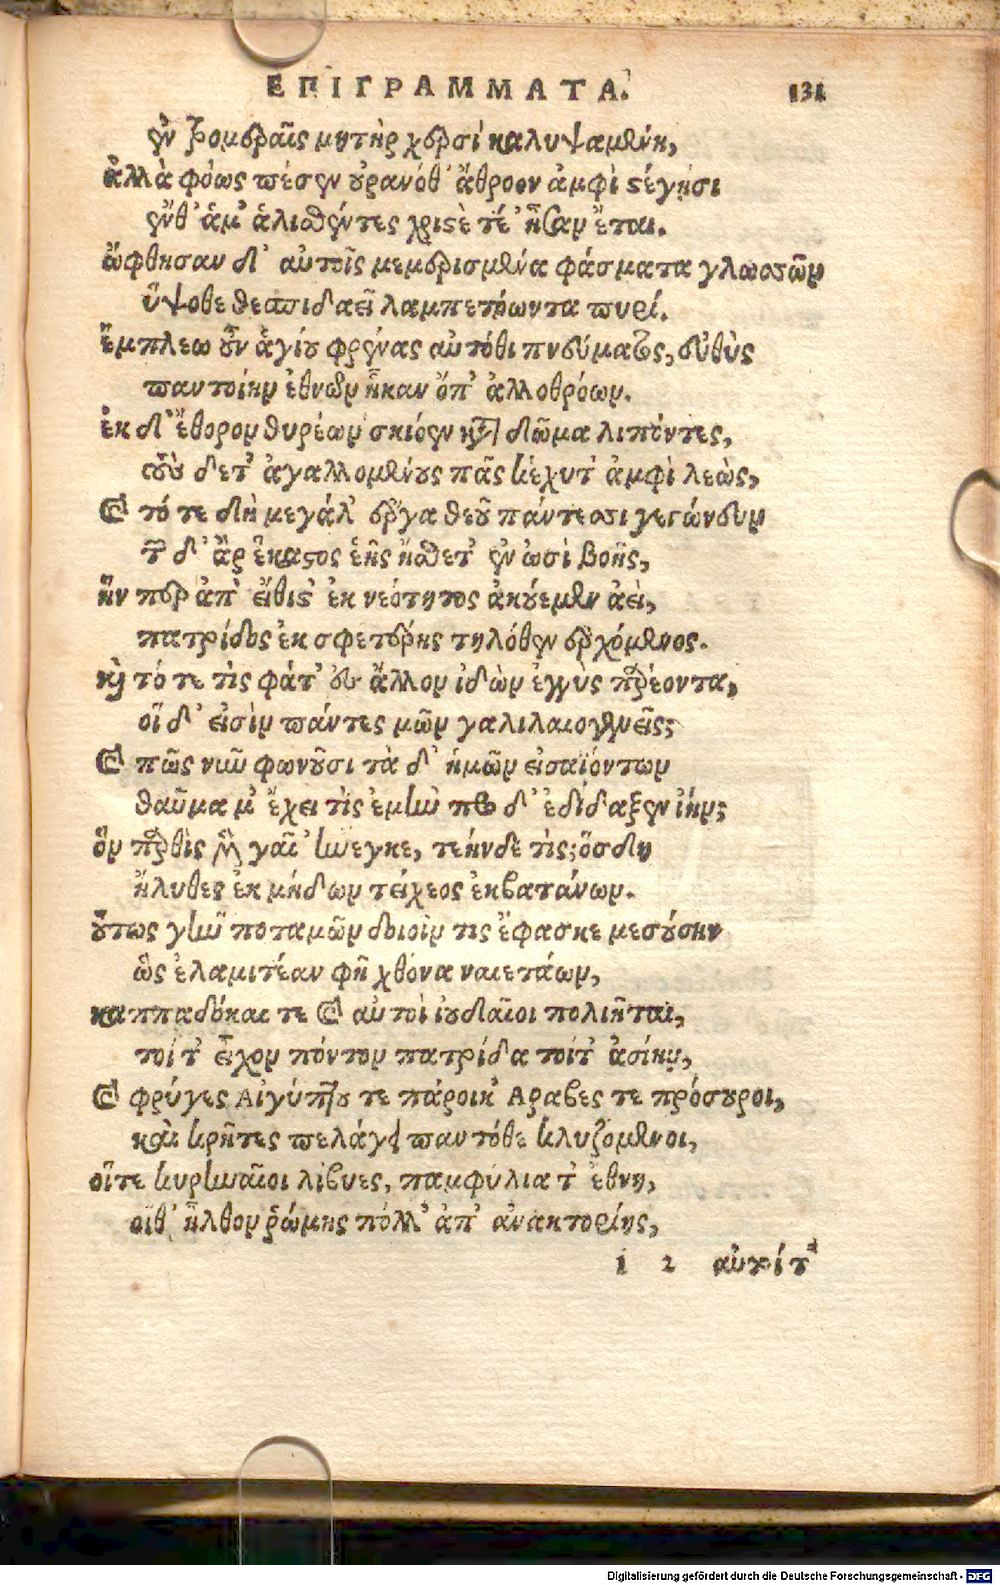 ΕΠΙΓΡΑΜΜΑΤΑ. 131
ἐν τρομεραῖς μητὴρ χερσὶ καλυψαμένη,
ἀλλὰ φόως πέσεν οὐρανόθ' ἄθροον ἀμφὶ στέγῃσι
ἔνθ' ἅμ' ἁλισθέντες χριστὲ τέ' ἦσαν ἔται.
ὤφθησαν δ' αὐτοῖς μεμερισμένα φάσματα γλωσσῶν
ὕψοθε θεσπιδαεῖ λαμπετόωντα πυρί.
ἔμπλεω οὖν ἁγίου φρένας αὐτόθι πνεύματος, εὐθὺς
παντοίην ἐθνεων ἧκαν ὄπ' ἀλλοθρόων.
ἐκ δ' ἔθορον θυρέων σκιόεν κατὰ δῶμα λιπόντες,
σὺν δετ' ἀγαλλομένους πᾶς κέχυτ' ἀμφὶ λεὼς,
καὶ τό τε δὴ μεγάλ' ἔργα θεοῦ πάντεσσι γεγώνευν
τῶν δ' ἂρ ἕκαστος ἑῆς ᾔσθετ' ἐν ὠσὶ βοῆς,
ἥν περ ἀπ' εἴθιστ' ἐκ νεότητος ἀκούεμεν ἀεὶ,
πατρίδος ἐκ σφετέρης τηλόθεν ἐρχόμενος.
καὶ τό τε τὶς φάτ' ἐς ἄλλον ἰδὼν ἐγγὺς παρέοντα,
οἵ δ' εἰσὶν πάντες μῶν γαλιλαιογενεῖς;
καὶ πῶς νῦν φωνοῦσι τὰ δ' ἡμῶν εἰσαϊόντων
θαῦμα μ' ἔχει τὶς ἐμὴν περ δ' ἐδίδαξεν ἰήν;
ὃν παρθὶς μὲν γαῖ' ἤνεγκε, τεήνδε τίς; ὅσδη
ἤλυθες ἐκ μήδων τείχεος ἐκβατάνων.
οὕτως γῆν ποταμῶν δοιοῖν τις ἔφασκε μεσούσην
ὣς ἐλαμιτέαν φῆ χθόνα ναιετάων,
καππαδόκαι τε καὶ αὐτοὶ ἰουδαῖοι πολιῆται,
τοί τ' εἶχον πόντον πατρίδα τοίτ' ἀσίην,
καὶ φρύγες Αἰγύπτου τε πάροικ' Αραβες τε πρόσουροι,
καὶ κρῆτες πελάγει παντόθε κλυζομενοι,
οἵτε κυρηναῖοι λίβυες, παμφύλια τ' ἐθνη,
οἵθ' ἦλθον ῥώμης πόλλ' ἀπ' ἀνακτορίης,
l 2 αὐτίτ'
Digitalisierung gefördert durch die Deutsche Forschungsgemeinschaft - DFG